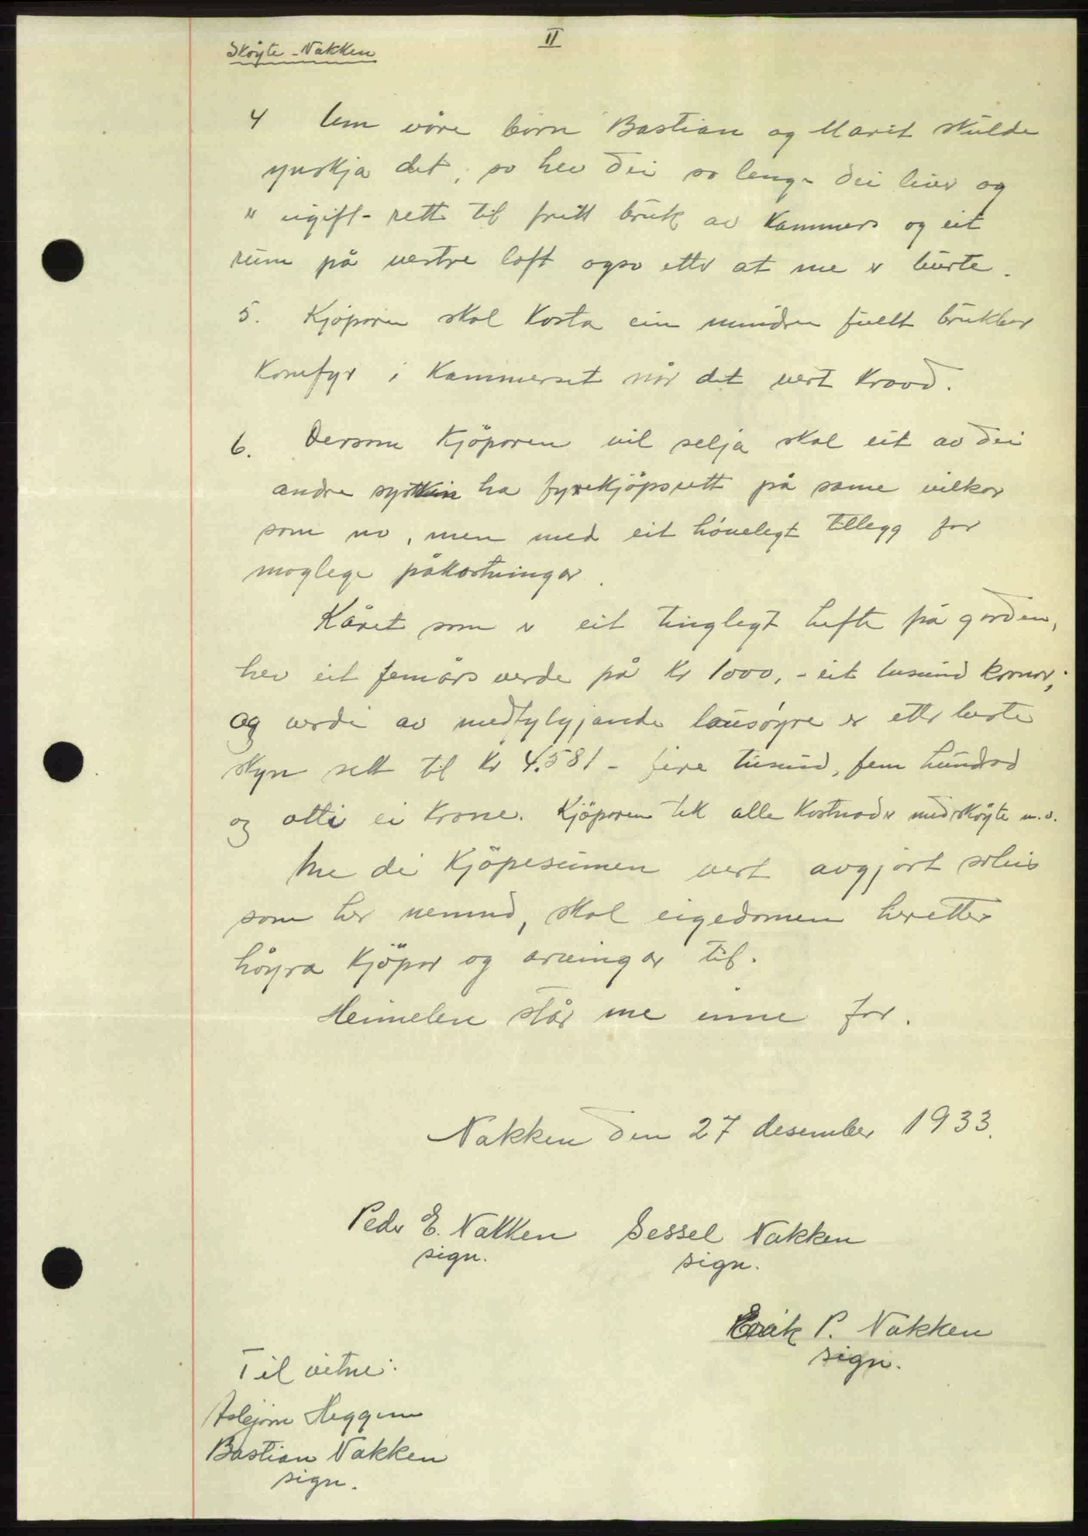 Skøyte - Nakken
II
4 Um våre born Bastian og Marit skulde
ynskja det, so hev dei so lenge dei liver og
er ugift - rett til fritt bruk av kammers og eit
rum på vestre loft ogso etter at me er burte.
5. Kjöparen skal kosta ein mindre fullt brukber
komfyr i kammerset når det vert kravd.
6. Dersom kjöparen vil selja skal eit av dei
andre syskin ha fyrekjöpsrett på same vilkor
som no, men med eit høvelegt tillegg for
moglege påkostningar.
Kåret som er eit tinglegt hefte på garden,
hev eit femårs verde på kr 1000,- eit tusund kronor;
og verdi av medfylgjande lausøyre er etter beste
skyn sett til kr 4.581 - fire tusund, fem hundrad
og otti ei krone. Kjöparen tek alle kostnader med skøyte m.v.
Me di kjöpesumen vert avgjort soleis
som her nemnd, skal eigedomen heretter
høyra kjöpar og arvingar til.
Heimelen står me inne for.
Nakken den 27 desember 1933.
Peder E. Nakken Sessel Nakken
sign. sign.
Erik P. Nakken
sign.
Til vitne:
Asbjørn Heggem
Bastian Nakken
sign.